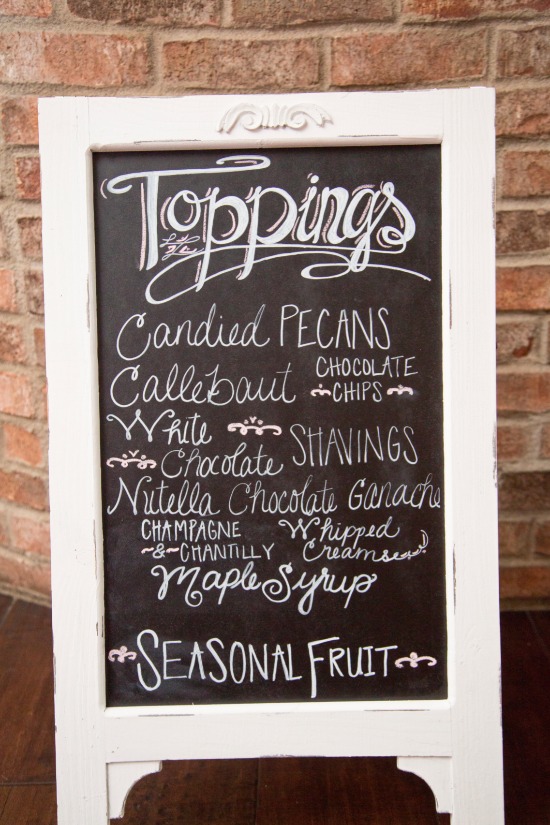 Toppings
Candied PECANS
Callebaut CHOCOLATE CHIPS
White Chocolate SHAVINGS
Nutella Chocolate Ganache
CHAMPAGNE & CHANTILLY Whipped Creams
Maple Syrup
SEASONAL FRUIT